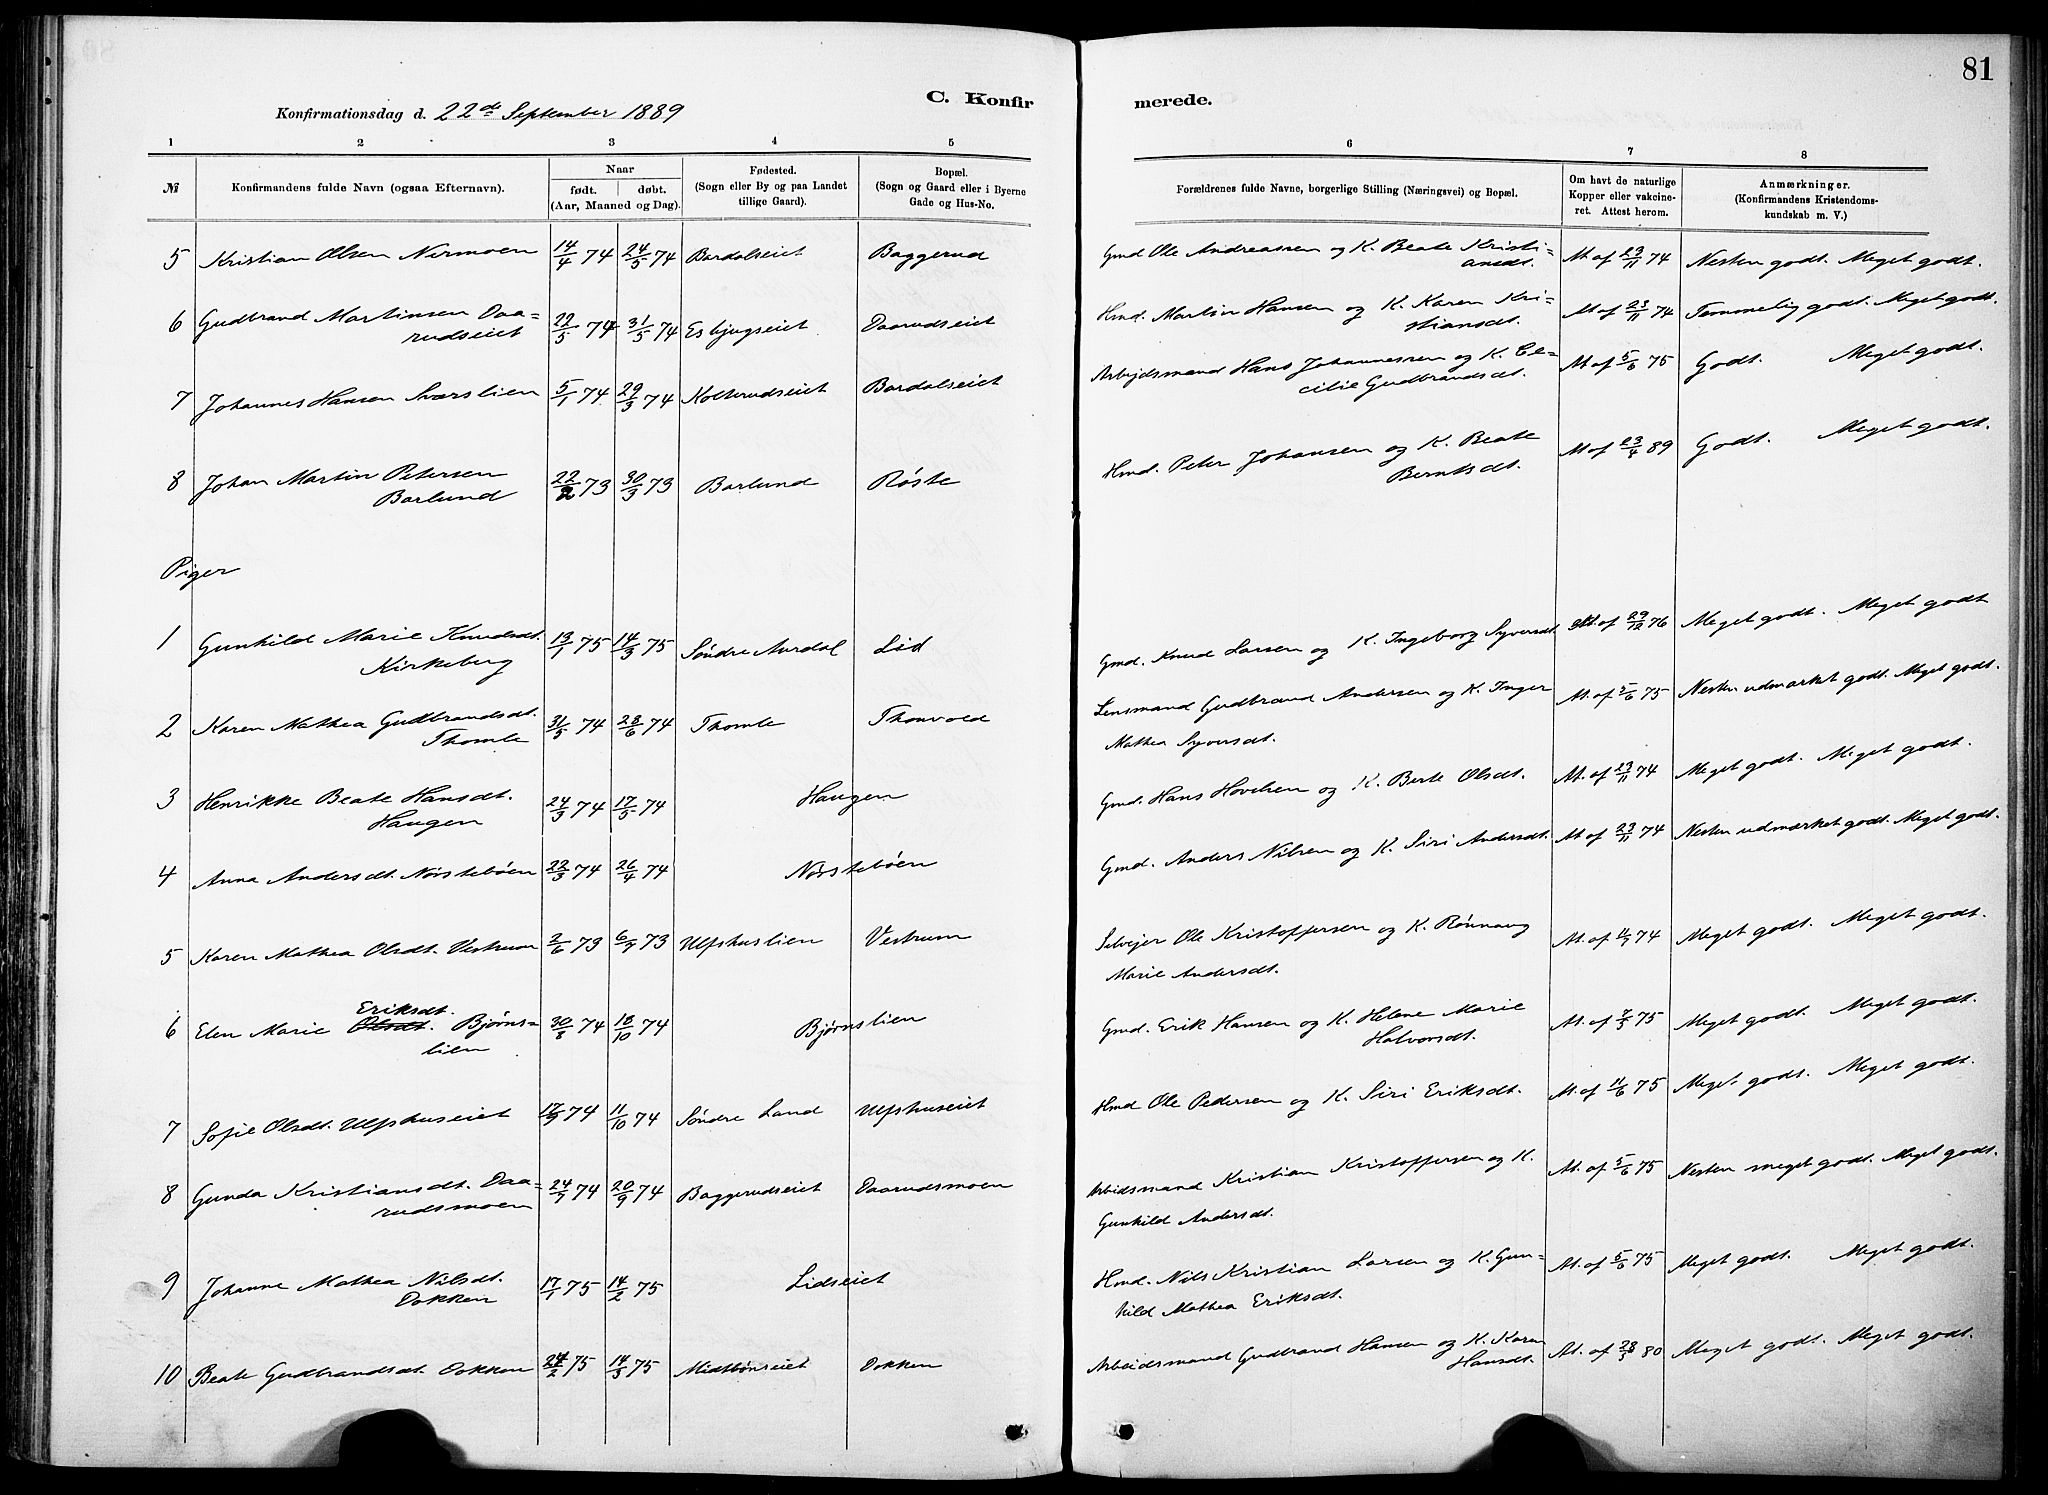 81
C. Konfirmerede.
Konfirmationsdag d. 22de September 1889
1 2 3 4 5 6 7 8
№ Konfirmandens fulde Navn (ogsaa Efternavn). Naar født. døbt. (Aar, Maaned og Dag). Fødested. (Sogn eller By og paa Landet tillige Gaard). Bopæl. (Sogn og Gaard eller i Byerne Gade og Hus-No. Forældrenes fulde Navne, borgerlige Stilling (Næringsvei) og Bopæl. Om havt de naturlige Kopper eller vakcineret. Attest herom. Anmærkninger. (Konfirmandens Kristendomskundskab m. V.)
5 Kristian Olsen Nermoen 14/4 74 24/5 74 Bardalseiet Baggerud Gmd Ole Andreassen og K. Beate Kristiansdt. At. af 23/11 74 Nesten godt. Meget godt.
6 Gudbrand Martinsen Daarudseiet 22/5 74 31/5 74 Esbjugseiet Daarudseiet Hmd. Martin Hansen og K. Karen Kristiansdt. At af 23/11 74 Temmelig godt. Meget godt.
7 Johannes Hansen Sværslien 5/1 74 29/3 74 Kolterudseiet Bardalseiet Arbejdsmand Hans Johannessen og K. Cecilie Gudbrandsdt. At af 5/6 75 Godt. Meget godt.
8 Johan Martin Petersen Barlund 22/2 73 30/3 73 Barlund Røste Hmd. Peter Johansen og K. Beate Berntsdt. At af 23/4 89 Godt. Meget godt.
Piger
1 Gunhild Marie Knudsdt. Kirkeberg 13/1 75 14/3 75 Søndre Aurdal Lid Gmd. Knud Larsen og K. Ingeborg Syversdt. At af 29/12 76 Meget godt. Meget godt
2 Karen Mathea Gudbrandsdt. Thomle 31/5 74 28/6 74 Thomle Thonvold Lensmand Gudbrand Andersen og K. Inger Mathea Syversdt. At. af 5/6 75 Nesten udmærket godt. Meget godt.
3 Henrikke Beate Hansdt. Haugen 24/3 74 17/5 74 Haugen Gmd. Hans Hovelsen og K. Berte Olsdt. At. af 23/11 74 Meget godt. Meget godt.
4 Anna Andersdt. Nørstebøen 22/3 74 26/4 74 Nørstebøen Gmd. Anders Nilsen og K. Siri Andersdt. At af 23/11 74 Nesten udmærket godt. Meget godt.
5 Karen Mathea Olsdt. Vestrum 2/6 73 6/7 73 Ulfshuslien Vestrum Selvejer Ole Kristoffersen og K. Rønnaug Marie Andersdt. At. af 11/7 74 Meget godt. Meget godt.
6 Elen Marie Olsdt. Eriksdt. Bjørnslien 30/8 74 18/10 74 Bjørnslien Gmd. Erik Hansen og K. Helene Marie Halvorsdt. At. af 7/5 75 Meget godt. Meget godt.
7 Sofie Olsdt. Ulfshuseiet 17/9 74 11/10 74 Søndre Land Ulfshuseiet Hmd Ole Pedersen og K. Siri Eriksdt. At. af 11/6 75 Meget godt. Meget godt.
8 Gunda Kristiansdt. Daarudsmoen 24/7 74 20/9 74 Baggerudseiet Daarudsmoen Arbeidsmand Kristian Kristoffersen og K. Gunhild Andersdt. At. af 5/6 75 Nesten meget godt. Meget godt.
9 Johanne Mathea Nilsdt. Dokken 17/1 75 14/2 75 Lidseiet Hmd. Nils Kristian Larsen og K. Gunhild Mathea Eriksdt. At. af 5/6 75 Meget godt. Meget godt.
10 Beate Gudbrandsdt. Dokken 24/2 75 14/3 75 Midtbønseiet Dokken Arbeidsmand Gudbrand Hansen og K. Karen Hansdt. At. af 28/5 80 Meget godt. Meget godt.